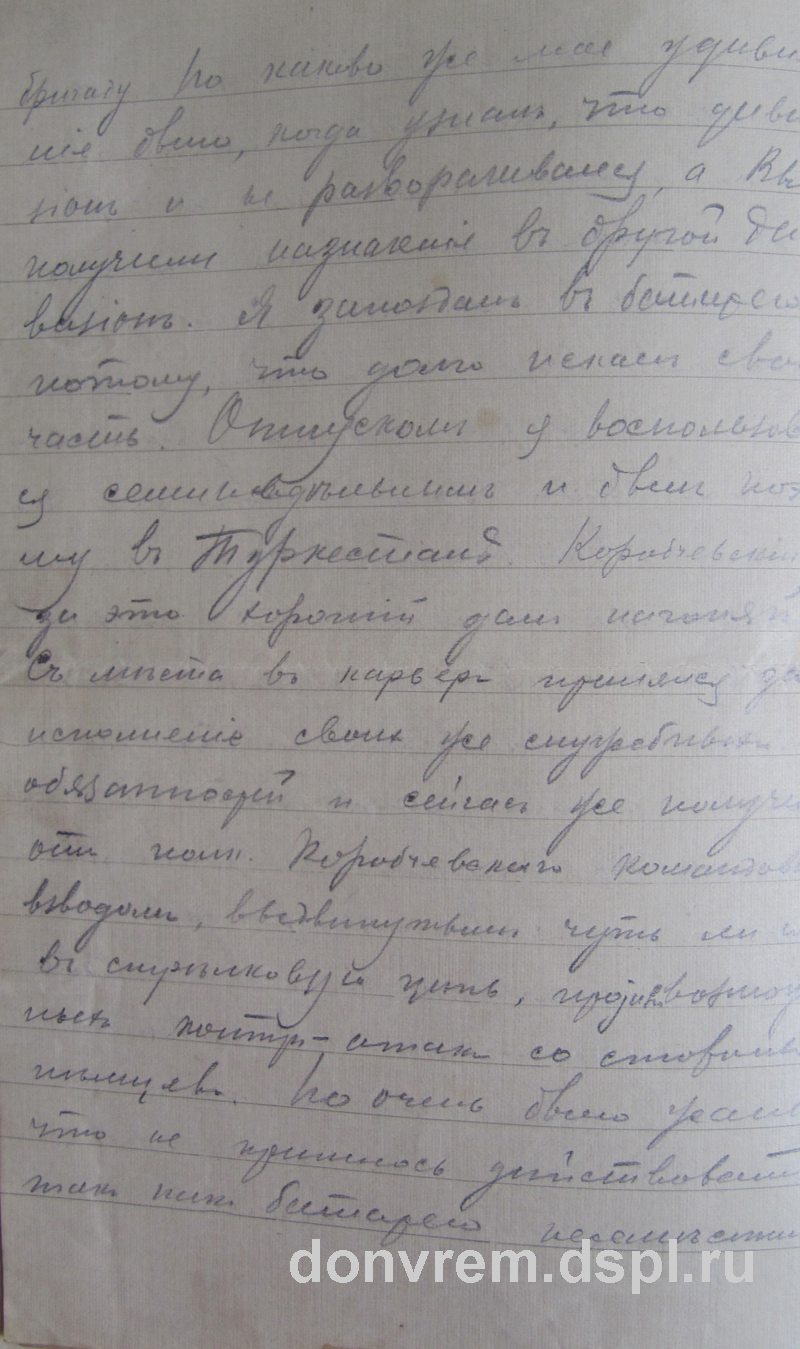 бригаду Но каково же мое удивле
ніе было, когда узналъ, что диви
зіонъ и не разворачивался, а Вы
получили назначеніе въ другой ди
визіонъ. Я запоздалъ въ батарею
потому, что долго искалъ свою
часть. Отпускомъ я воспользов
ся семинедѣльнымъ и былъ
му въ Туркестанѣ. Коробчевскій
за это хорошій далъ нагоняй
Съ мѣста въ карьеръ принялся за
исполненіе своихъ же служебныхъ
обязанностей и сейчасъ же получи
отъ полк. Коробчевскаго командов
взводомъ, выдвинутымъ чуть ли н
въ стрѣлковую цѣпь, возмож
ныхъ контръ-атакъ со стороны
нѣмцевъ. Но очень было жаль
что не пришлось дѣйствовать
такъ какъ батарею
donvrem.dspl.ru